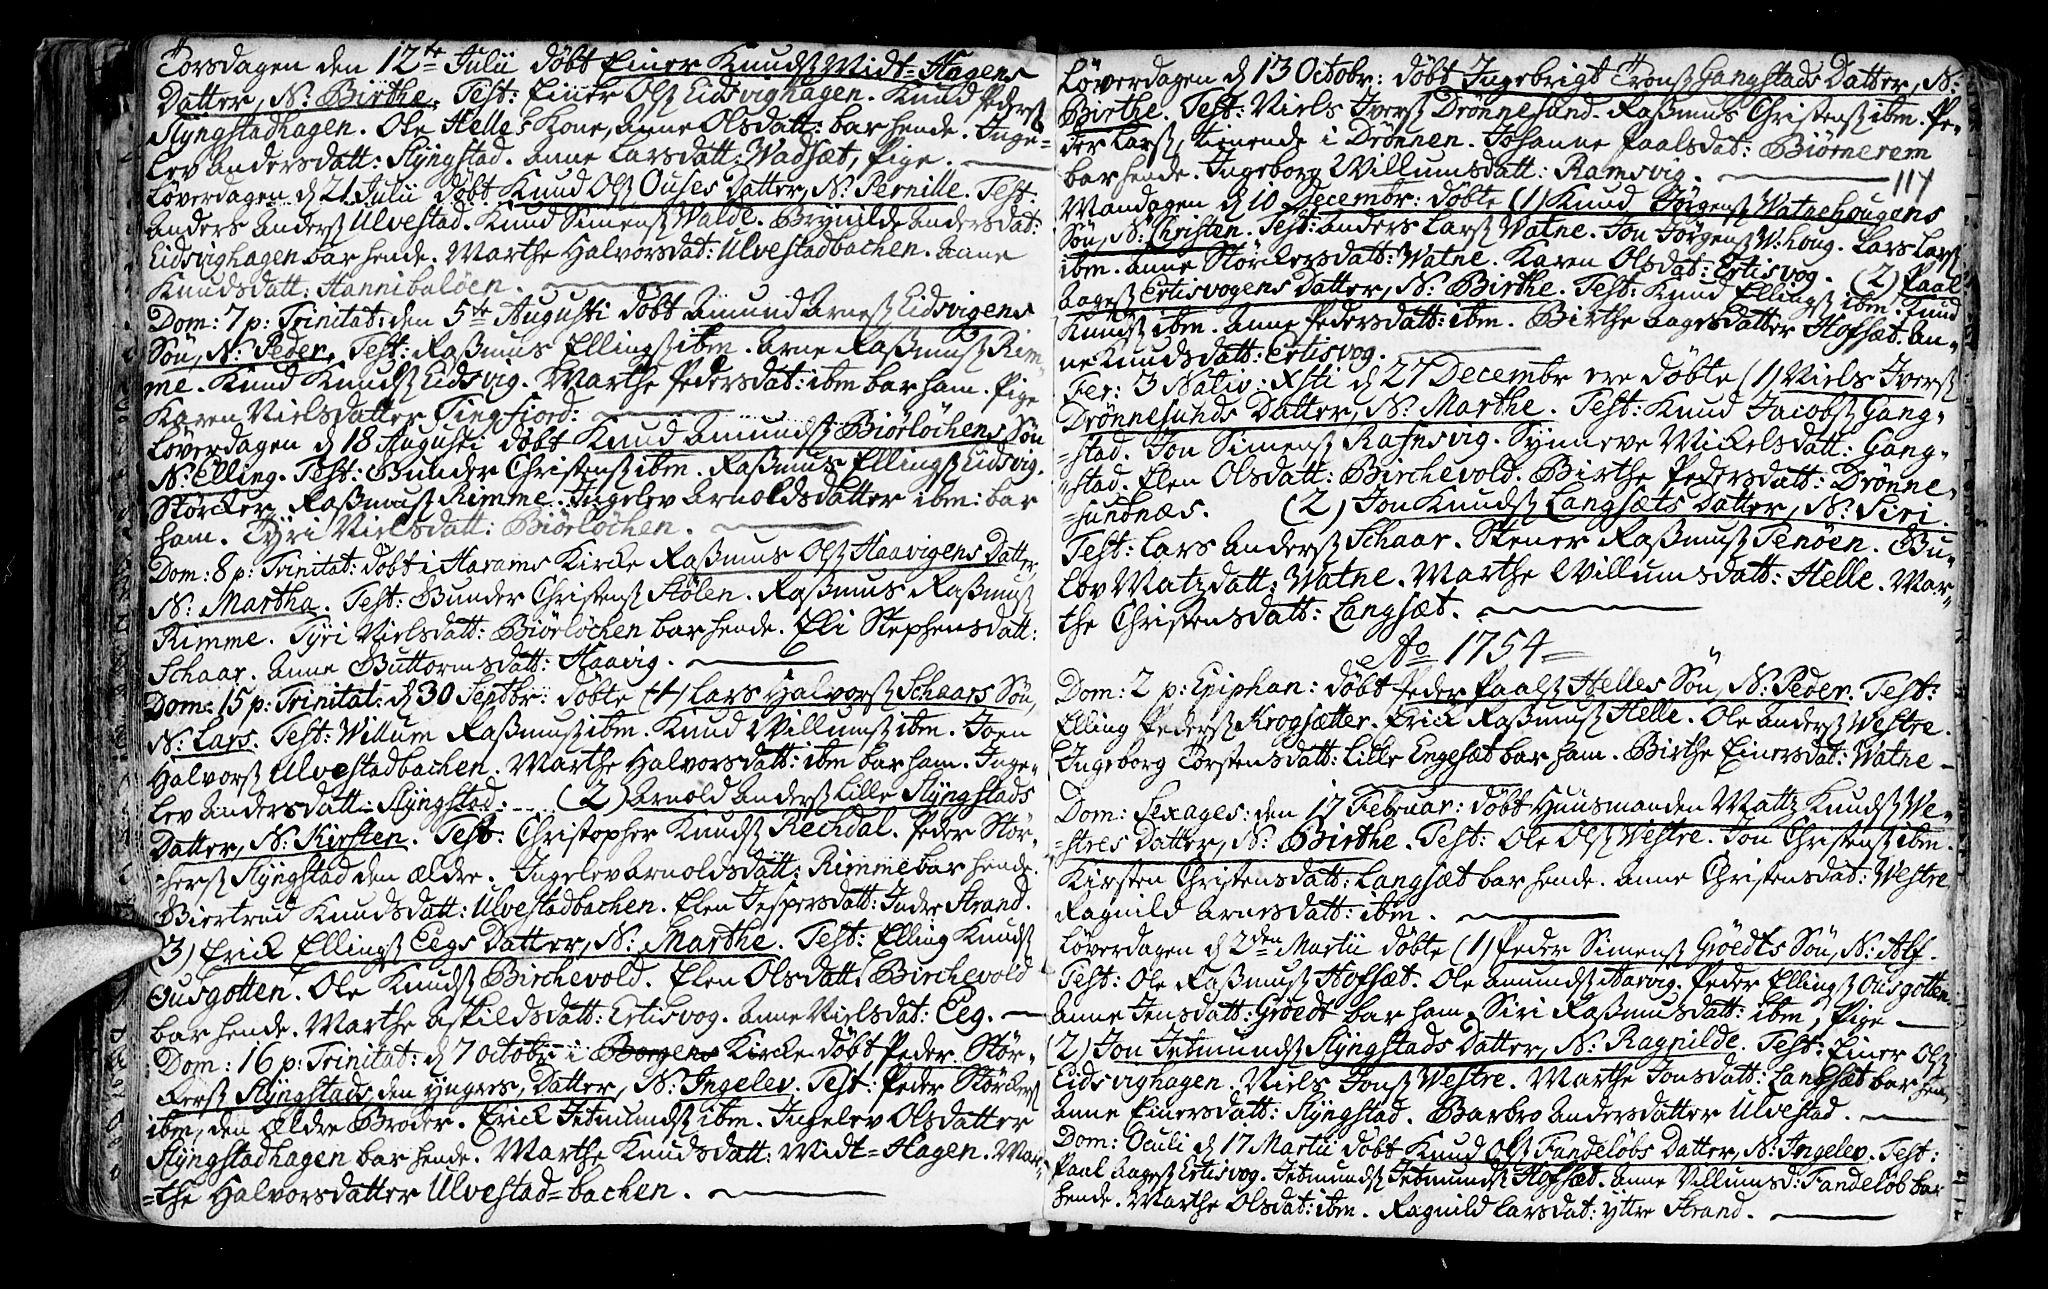 Torsdagen den 12te Julii döbt Einer Knudsß Midt=Hagens
Datter, N: Birthe. Test: Einer Olsß Eidsvighagen. Knud Pedersß
Slyngstadhagen. Ole Helles Kone, Anne Olsdatt: bar hende. Inge-
lev Andersdatt: Slyngstad. Anne Larsdatt: Wadsæt, Pige.
Löverdagen d 21 Julii döbt Knud Olsß Ouses Datter, N: Pernille. Test:
Anders Andersß Ulvestad. Knud Simensß Walde. Brynilde Andersdat:
Eidsvighagen bar hende. Marthe Halvorsdat: Ulvestadbachen. Anne
Knudsdatt: Hannibalöen.
Dom: 7 p: Trinitat: den 5te Augusti döbt Amund Arnesß Eidsvigens
Sön, N: Peder. Test: Raßmus Ellingsß ibm. Arne Raßmusß Rim-
me. Knud Knudsß Eidsvig. Marthe Pedersdat: ibm bar ham. Pige
Karen Nielsdatter Tingfiord:
Löverdagen d 18 Augusti döbt Knud Amundsß Biörlöchens Sön
N: Elling. Test: Gunder Christensß ibm. Raßmus Ellingsß Eidsvig.
Störcker Raßmusß Rimme. Ingelev Arnoldsdatter ibm: bar
ham. Tyri Nielsdatt: Biörlöchen.
Dom: 8 p: Trinitat: döbt i Harams Kircke Raßmus Olsß Haavigens Datter,
N: Martha. Test: Gunder Christensß Hölen. Raßmus Raßmusß
Rimme. Tyri Nielsdatt: Biörlöchen bar hende. Eli Stephensdatt:
Schaar. Anne Guttormsdatt: Haavig.
Dom: 15 p: Trinitat: d 30 Septbr: döbte (1) Lars Halvorsß Schaars Sön,
N: Lars. Test: Willum Raßmusß ibm. Knud Willumsß ibm. Joen
Halvorsß Ulvestadbachen. Marthe Halvorsdatt: ibm bar ham. Inge-
lev Andersdatt: Slyngstad. (2) Arnold Andersß Lille Slyngstads
Datter, N: Kirsten. Test: Christopher Knudsß Rechdal. Peder Stör-
kersß Slyngstad den ældre. Ingelev Arnoldsdatt: Rimme bar hende.
Biertrud Knudsdatt: Ulvestadbachen. Elen Jespersdatt: Indre Strand.
(3) Erick Ellingsß Eegs Datter, N: Marthe. Test: Elling Knudsß
Ousgotten. Ole Knudsß Birchevold. Elen Olsdatt: Birchevold
bar hende. Marthe Askildsdatt: Ertisvog. Anne Nielsdat: Eeg.
Dom: 16 p: Trinitat: d 7 octobr i Borgens Kircke döbt Peder Stör-
kersß Slyngstads den yngres, Datter, N: Ingelev. Test: Peder Störkersß
ibm, den ældre Broder. Erick Jetmundsß ibm. Ingelev Olsdatter
Slyngstadhagen bar hende. Marthe Knudsdatt: Midt=Hagen. Mar-
=the Halvorsdatter Ulvestad=bachen.
Löverdagen d 13 Octobr: döbt Ingebrigt Tronsß Gangstads Datter, N:
Birthe. Test: Niels Iversß Drönnesund. Raßmus Christensß ibm. Pe-
der Larsß, tienende i Drönnen. Johanne Paalsdat: Biörnerem
bar hende. Ingeborg Willumsdatt: Ramsvig.
117
Mandagen d 10 Decembr: döbte (1) Knud Jörgensß Watnehougens
Sön, N: Christen. Test: Anders Larsß Watne. Jon Jörgensß W:houg. Lars Larsß
ibm. Anne Störckersdatt: Watne. Karen Olsdat: Ertisvog. (2) Paal
Aagesß Ertisvogens Datter, N: Birthe. Test: Knud Ellingsß ibm. Knud
Knudsß ibm. Anne Pedersdatt: ibm. Birthe Aagesdatter Hofsæt. An-
ne Knudsdatt: Ertisvog.
Fer: 3 Nativ: Xsti d 27 Decembr ere döbte (1) Niels Iversß
Drönnesunds Datter, N: Marthe. Test: Knud Jacobsß Gang-
=stad. Jon Simensß Rafnsvig. Synneve Mickelsdatt: Gang-
=stad. Elen Olsdatt: Birchevold. Birthe Pedersdatt: Drönne-
=sundnæs. (2) Jon Knudsß Langsæts Datter, N: Siri.
Test: Lars Andersß Schaar. Stener Raßmusß Tenöen. Gu-
lov Matzdatt: Watne. Marthe Willumsdatt: Helle. Mar-
the Christensdatt: Langsæt.
Ao 1754
Dom: 2 p: Epiphan: döbt Peder Paalsß Helles Sön, N: Peder. Test:
Elling Pedersß Krogsætter. Erick Raßmusß Helle. Ole Andersß Westre.
Ingeborg Torstensdatt: Lille Engesæt bar ham. Birthe Einersdat: Watne
Dom: Sexages: den 17 Februar: döbt Huusmanden Mattz Knudsß We-
=stres Datter, N: Birthe. Test: Ole Olsß Westre. Jon Christensß ibm.
Kirsten Christensdatt: Langsæt bar hende. Anne Christensdat: Westre
Ragnild Arnesdatt: ibm.
Löverdagen d 2den Martii döbte (1) Peder Simensß Gröedts Sön, N: Alf.
Test: Ole Raßmusß Hofsæt. Ole Amundsß Haavig. Peder Ellingsß Ousgotten.
Anne Jensdatt: Gröedt bar ham. Siri Raßmusdatt: ibm, Pige
(2) Jon Jetmundsß Slyngstads Datter, N: Ragnilde. Test: Einer Olsß
Eidsvighagen. Niels Jonsß Westre. Marthe Jonsdatt: Langsæt bar hen.
Anne Einersdatt: Slyngstad. Barbro Andersdatter Ulvestad.
Dom: Oculi d 17 Martii döbt Knud Olsß Fandelöbs Datter, N: Ingelev. Test:
Paal Aagesß Ertisvog. Jetmundsß Jetmundsß Hofsæt. Anne Villumsd: Fandelöb bar
hende. Marthe Olsdat: ibm. Ragnild Larsdat: yttre Strand.